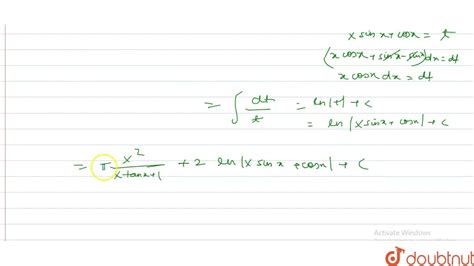 x sinx + cosx = t
(x cosx + sinx - sinx) dx = dt
x cosx dx = dt
= ∫ dt/t = ln|t| + C
= ln |x sinx + cosx| + C
= x²/(x tanx + 1) + 2 ln |x sinx + cosx| + C
Activate Windows
doubtnut